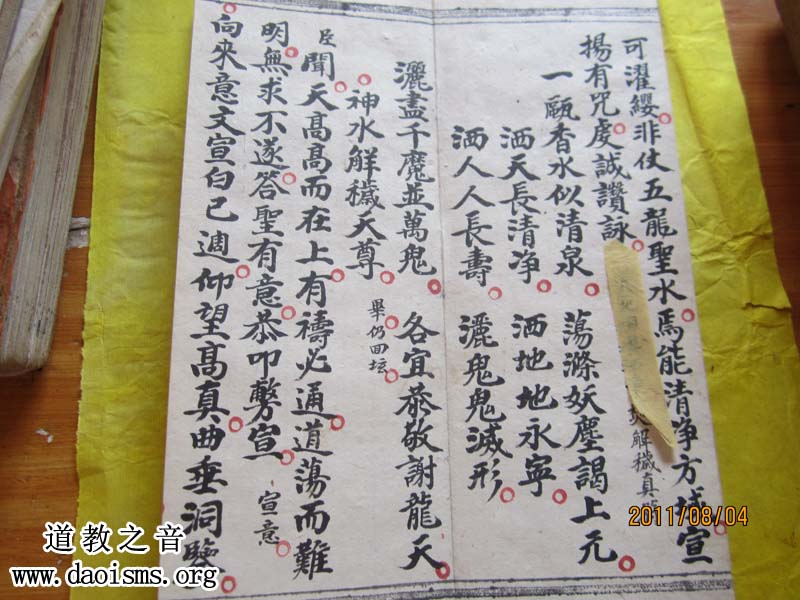 可濯纓非仗五龍聖水焉能清净方域宣
揚有咒虔誠讚詠
解穢真
一甌香水似清泉 蕩滌妖塵謁上元
洒天天長清净 洒地地永寧
洒人人長壽 灑鬼鬼滅形
灑盡千魔並萬鬼 各宜恭敬謝龍天
神水解穢天尊 畢仍回坛
臣聞天高高而在上有禱必通道蕩而難
明無求不遂答聖有意恭叩宣 宣意
向來意文宣白已週仰望高真曲垂洞鑒
2011/08/04
道教之音
www.daoisms.org